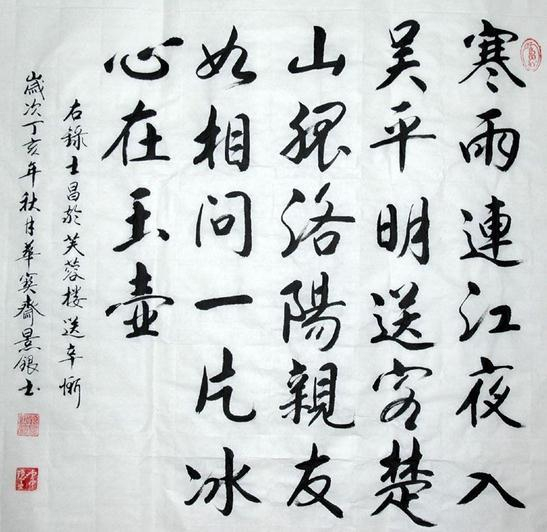 寒雨連江夜入
吴平明送客楚
山孤洛陽親友
如相問一片冰
心在玉壶
右錄士昌於芙蓉楼送辛漸
歲次丁亥年秋月華寶齋景銀士